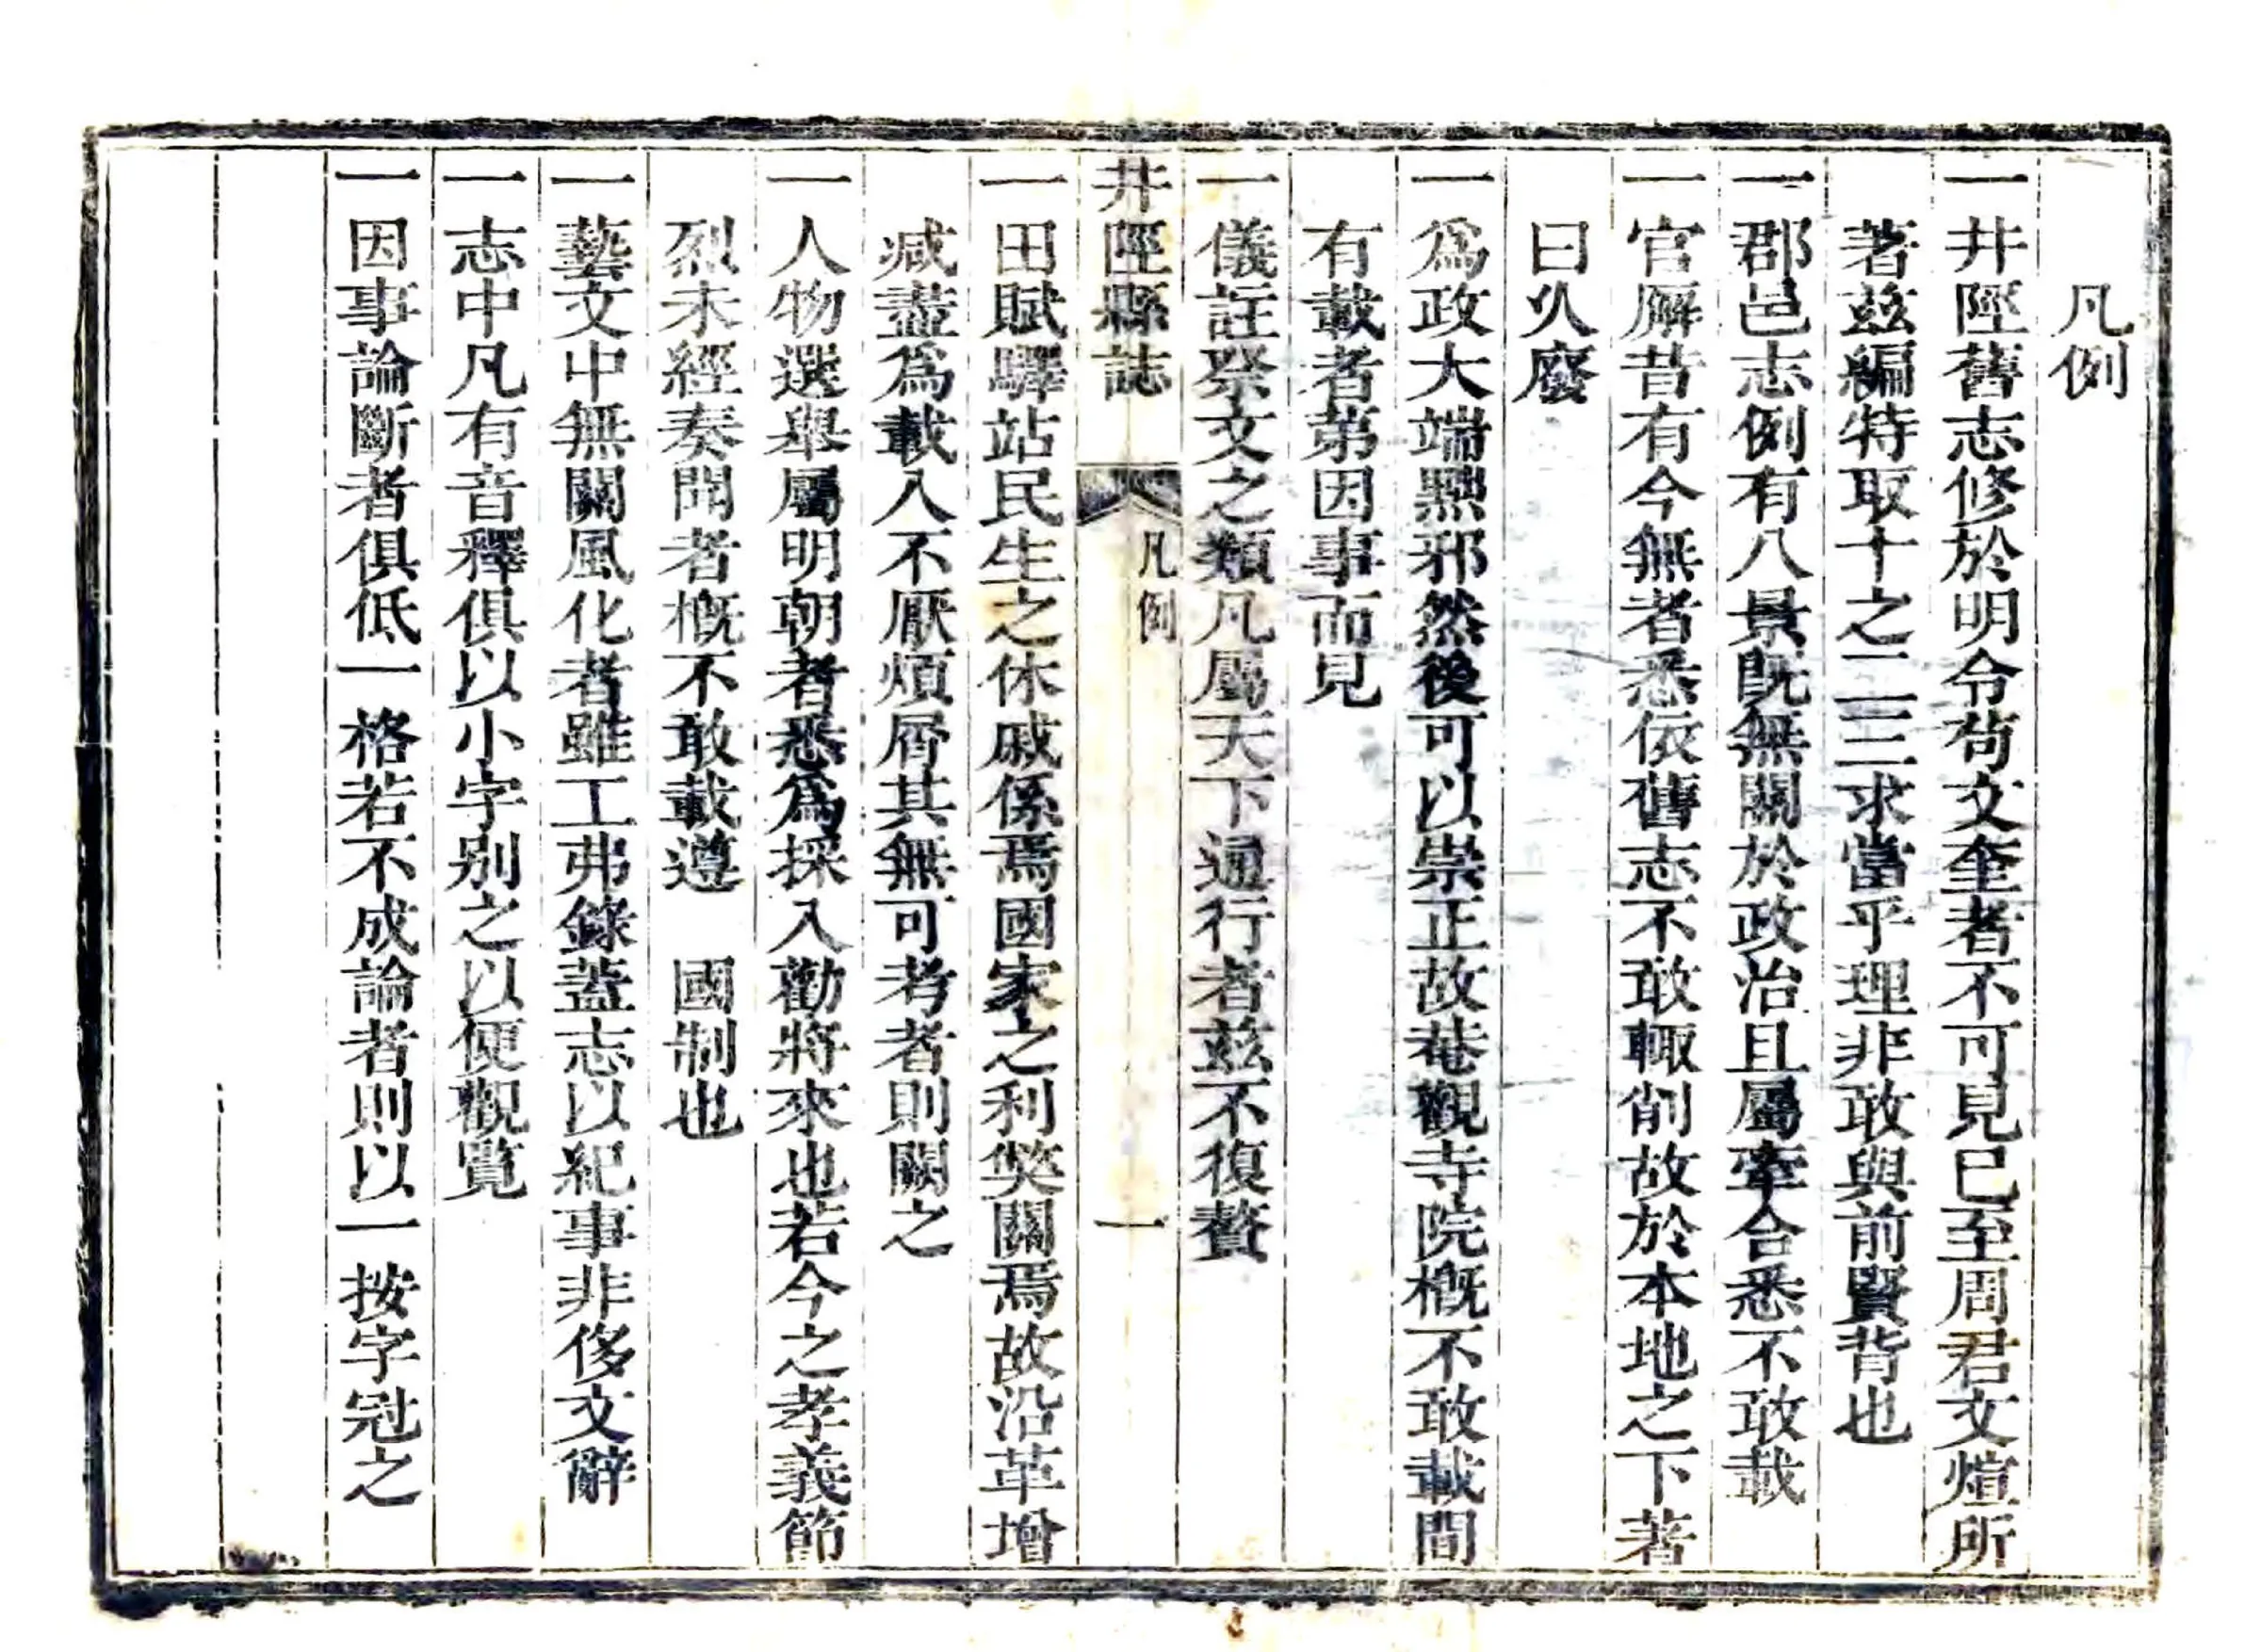 凡例
一井陘舊志修於明令苟文奎者不可見已至周君文煊所
著茲編特取十之二三求當乎理非敢與前賢背也
一郡邑志例有八景既無關於政治且屬牽合悉不敢載
一官廨昔有今無者悉依舊志不敢輙削故於本地之下著
曰久廢
一爲政大端黜邪然後可以崇正故菴觀寺院槪不敢載間
有載者第因事而見
一儀註祭文之類凡屬天下通行者茲不復贅
井陘縣誌
凡例
一
一田賦驛站民生之休戚係焉國家之利獘關焉故沿革增
减盡爲載入不厭煩屑其無可考者則闕之
一人物選舉屬明朝者悉爲採入勸將來也若今之孝義節
烈未經奏聞者槪不敢載遵 國制也
一藝文中無關風化者雖工弗錄蓋志以紀事非侈文辭
一志中凡有音釋俱以小字别之以便觀覽
一因事論斷者俱低一格若不成論者則以一按字冠之